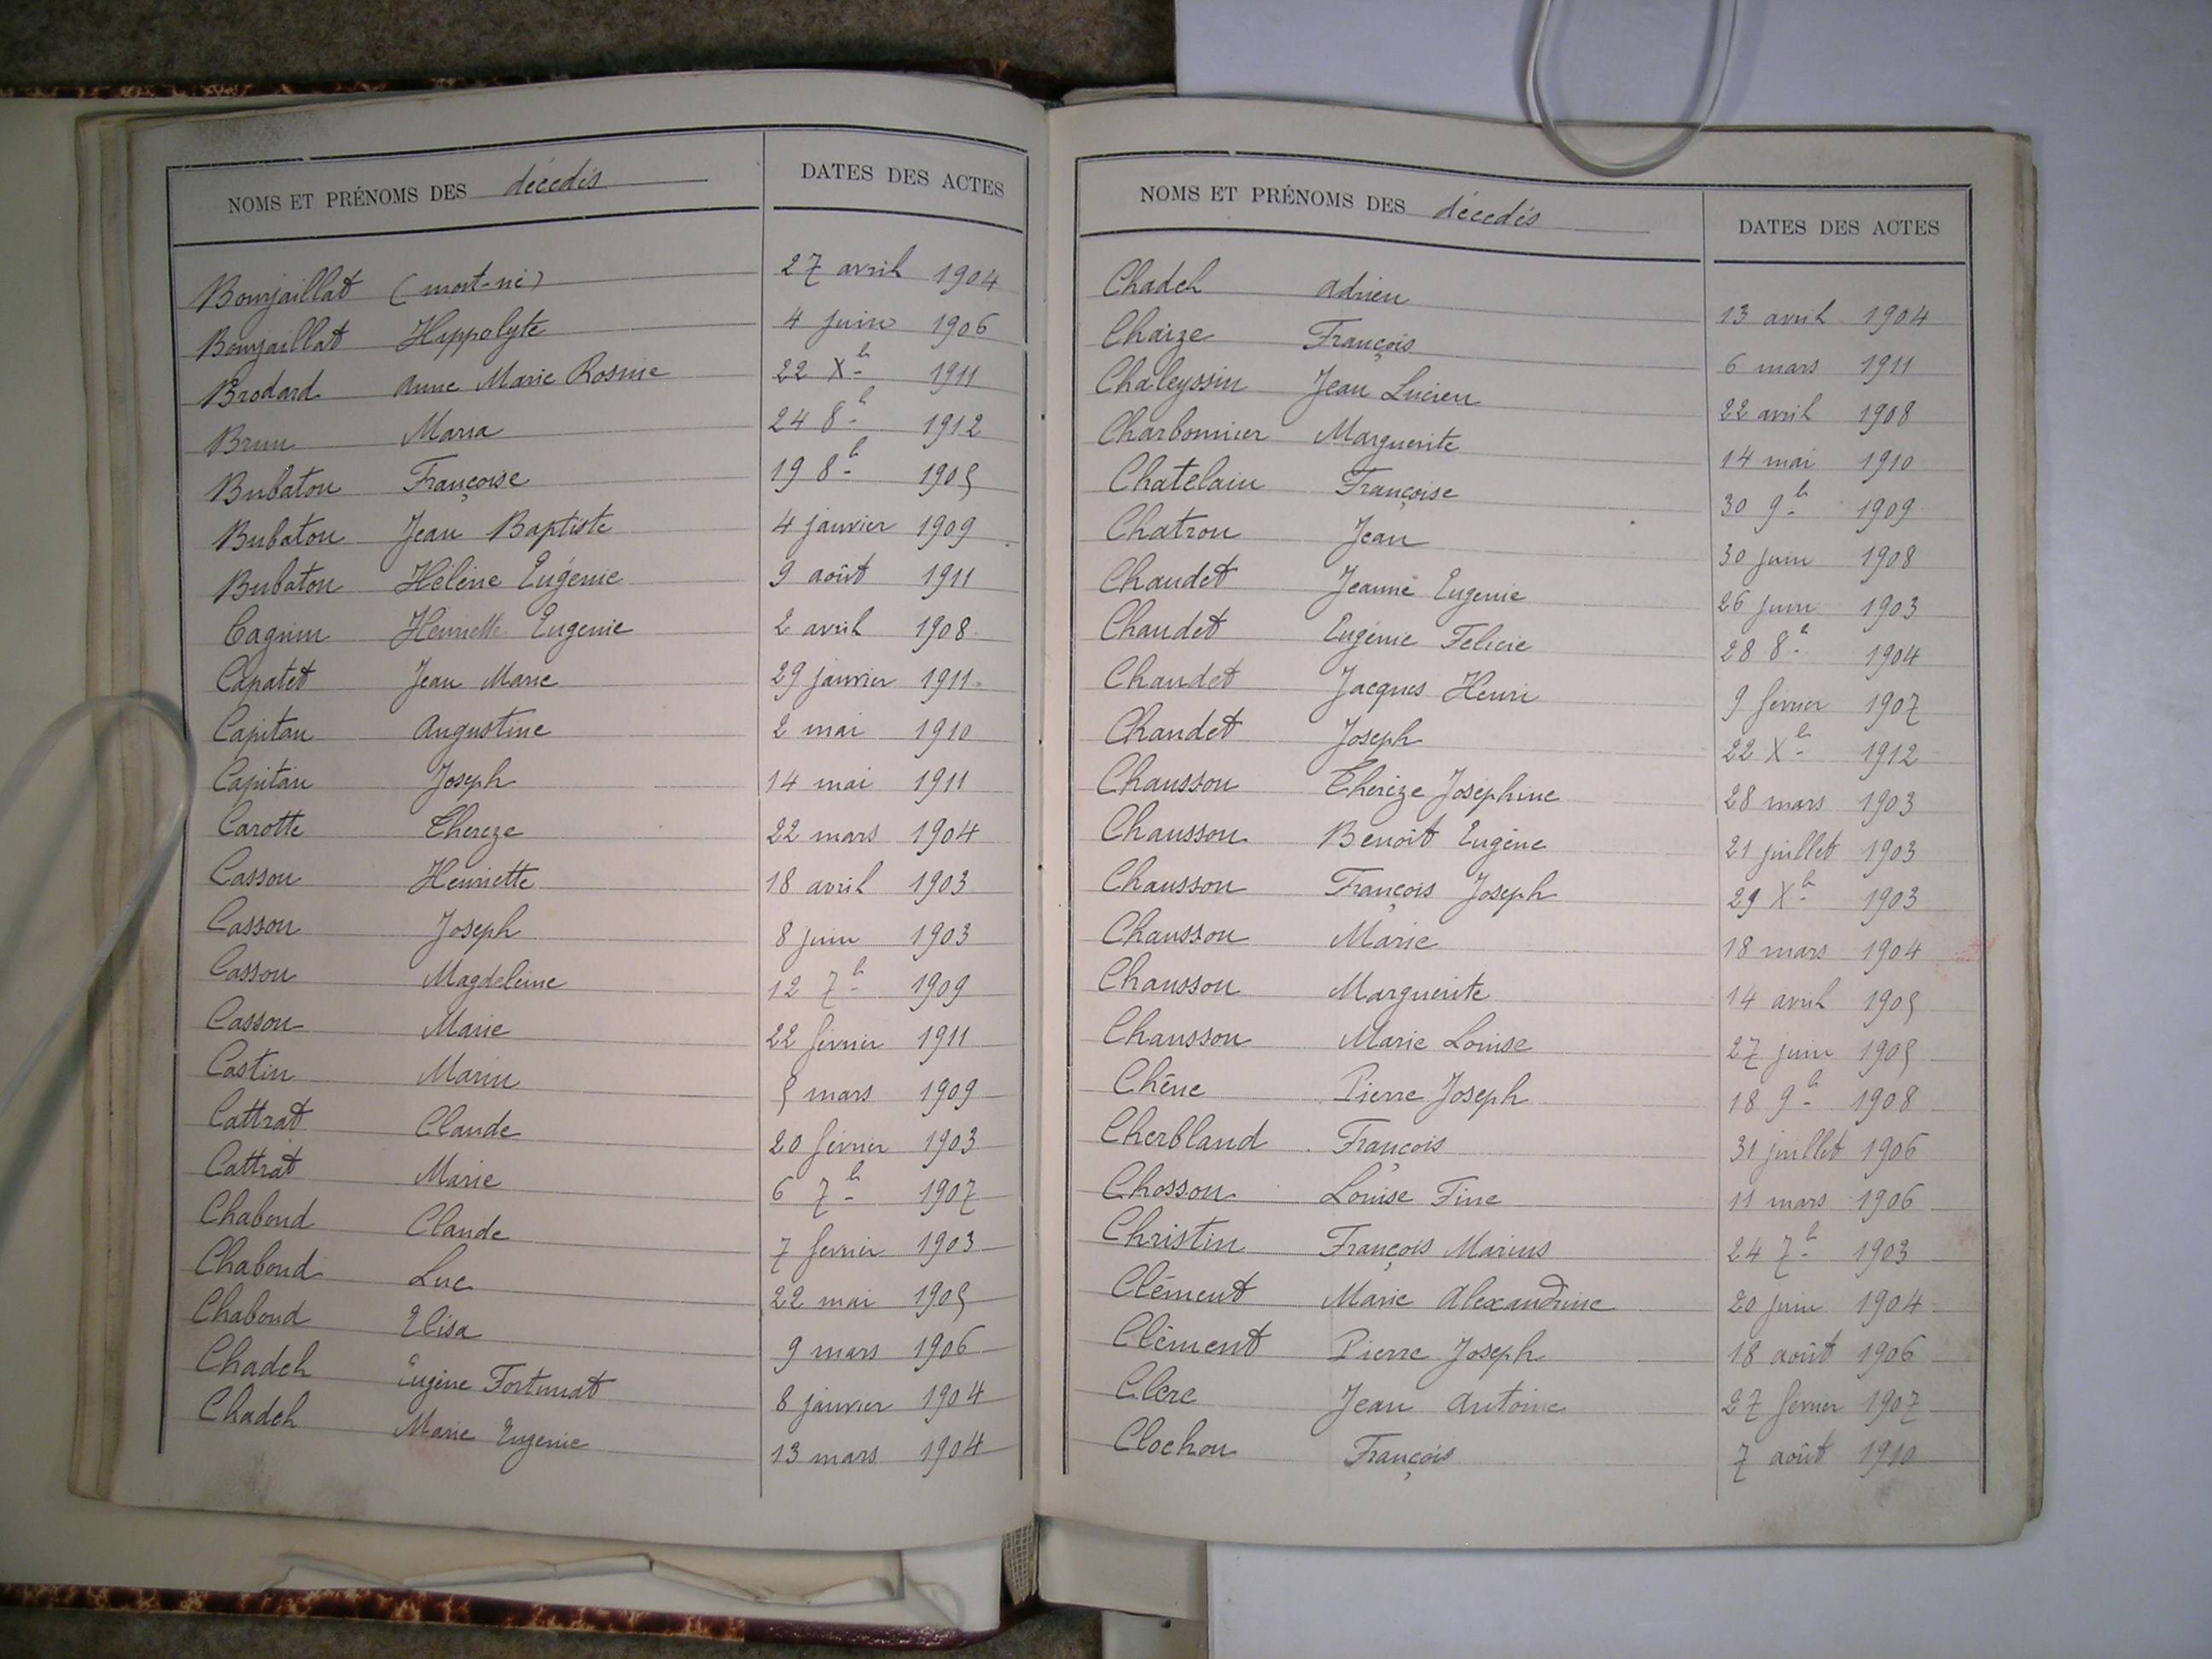 NOMS ET PRÉNOMS DES décédés DATES DES ACTES
Bourjaillat (mort-né) 27 avril 1904
Bourjaillat Hippolyte 4 juin 1906
Brodard Anne Marie Rosine 22 Xb 1911
Brun Maria 24 8b 1912
Bubaton Françoise 19 8b 1905
Bubaton Jean Baptiste 4 janvier 1909
Bubaton Hélène Eugénie 9 août 1911
Cagnin Henriette Eugenie 2 avril 1908
Capatet Jean Marie 29 janvier 1911
Capitan Augustine 2 mai 1910
Capitan Joseph 14 mai 1911
Carotte Thereze 22 mars 1904
Casson Henriette 18 avril 1903
Casson Joseph 8 juin 1903
Casson Magdeleine 12 7b 1909
Casson Marie 22 février 1911
Castin Marin 5 mars 1909
Cattrat Claude 20 février 1903
Cattrat Marie 6 7b 1907
Chaboud Claude 7 fevrier 1903
Chaboud Luc 22 mai 1905
Chaboud Elisa 9 mars 1906
Chadel Eugène Fortunat 8 janvier 1904
Chadel Marie Eugenie 13 mars 1904
NOMS ET PRÉNOMS DES décédés DATES DES ACTES
Chadel Adrien 13 avril 1904
Chaize François 6 mars 1911
Chaleyssin Jean Lucien 22 avril 1908
Charbonnier Marguerite 14 mai 1910
Chatelain Françoise 30 9b 1909
Chatron Jean 30 juin 1908
Chaudet Jeanne Eugenie 26 juin 1903
Chaudet Eugénie Felicie 28 8b 1904
Chaudet Jacques Henri 9 février 1907
Chaudet Joseph 22 Xb 1912
Chausson Thérèze Joséphine 28 mars 1903
Chausson Benoît Eugène 21 juillet 1903
Chausson François Joseph 29 Xb 1903
Chausson Marie 18 mars 1904
Chausson Marguerite 14 avril 1905
Chausson Marie Louise 27 juin 1905
Chêne Pierre Joseph 18 9b 1908
Cherbland François 31 juillet 1906
Chosson Louise Fine 11 mars 1906
Christin François Marius 24 7b 1903
Clément Marie Alexandrine 20 juin 1904
Clément Pierre Joseph 18 août 1906
Clerc Jean Antoine 27 février 1907
Clochon François 7 août 1910